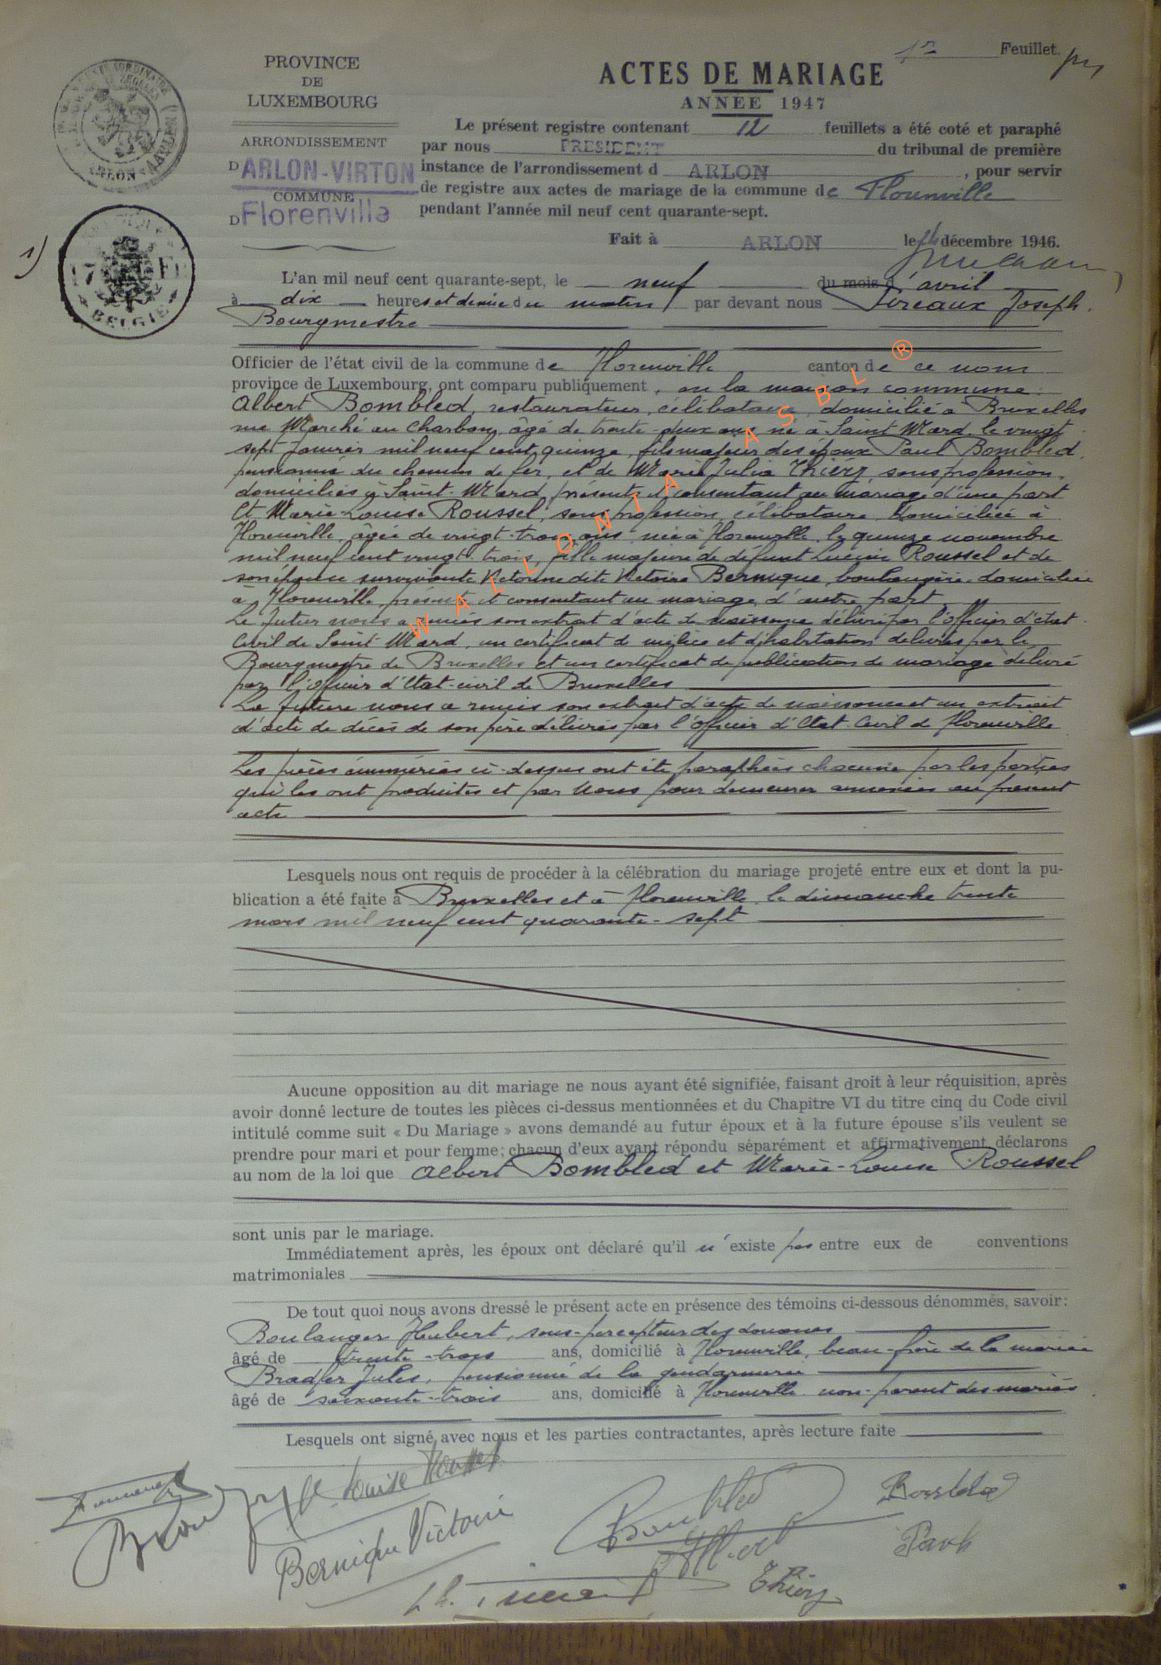 1er Feuillet.
PROVINCE
DE
LUXEMBOURG
ARRONDISSEMENT
D ARLON-VIRTON
COMMUNE
D Florenville
ACTES DE MARIAGE
ANNÉE 1947
Le présent registre contenant 12 feuillets a été coté et paraphé
par nous PRESIDENT du tribunal de première
instance de l'arrondissement d ARLON, pour servir
de registre aux actes de mariage de la commune de Florenville
pendant l'année mil neuf cent quarante-sept.
Fait à ARLON le décembre 1946.
1)
BELGIE
L'an mil neuf cent quarante-sept, le neuf du mois d'avril
à dix heures et demie du matin par devant nous Joseph.
Bourgmestre
Officier de l'état civil de la commune de Florenville canton de ce nom
province de Luxembourg, ont comparu publiquement, en la maison commune:
Albert Bombled, restaurateur, célibataire, domicilié à Bruxelles
rue Marché au Charbon, âgé de trente-deux ans né à Saint Mard, le vingt
sept janvier mil neuf cent quinze, fils majeur des époux Paul Bombled,
pensionné du chemin de fer, et de Marie Julia Thiery, sans profession,
domiciliés à Saint-Mard présents et consentant au mariage d'une part
Et Marie-Louise Roussel, sans profession, célibataire, domiciliée à
Florenville, âgée de vingt-trois ans, née à Florenville, le quinze novembre
mil neuf cent vingt-trois, fille majeure de défunt Lucien Roussel et de
son épouse survivante dite Victoire Bernique, boulangère, domiciliée
à Florenville, présente et consentant au mariage, d'autre part
Le futur nous a remis son extrait d'acte de naissance délivré par l'officier d'état
civil de Saint Mard, un certificat de milice et d'habitation délivrés par le
Bourgmestre de Bruxelles et un certificat de publication de mariage délivré
par l'officier d'Etat-civil de Bruxelles
La future nous a remis son extrait d'acte de naissance et un extrait
d'acte de décès de son père délivrés par l'officier d'Etat-Civil de Florenville
Les pièces énumérées ci-dessus ont été paraphées chacune par les parties
qui les ont produites et par Nous pour demeurer annexées au présent
acte
WALLONIA ASBL ®
Lesquels nous ont requis de procéder à la célébration du mariage projeté entre eux et dont la pu-
blication a été faite à Bruxelles et à Florenville, le dimanche trente
mars mil neuf cent quarante-sept
Aucune opposition au dit mariage ne nous ayant été signifiée, faisant droit à leur réquisition, après
avoir donné lecture de toutes les pièces ci-dessus mentionnées et du Chapitre VI du titre cinq du Code civil
intitulé comme suit « Du Mariage » avons demandé au futur époux et à la future épouse s'ils veulent se
prendre pour mari et pour femme; chacun d'eux ayant répondu séparément et affirmativement, déclarons
au nom de la loi que Albert Bombled et Marie-Louise Roussel
sont unis par le mariage.
Immédiatement après, les époux ont déclaré qu'il n'existe pas entre eux de conventions
matrimoniales
De tout quoi nous avons dressé le présent acte en présence des témoins ci-dessous dénommés, savoir:
Boulanger Hubert, sous-percepteur des douanes
âgé de trente-trois ans, domicilié à Florenville, beau-frère de la mariée
Jules, pensionné de la gendarmerie
âgé de soixante-trois ans, domicilié à Florenville non-parent des mariés
Lesquels ont signé avec nous et les parties contractantes, après lecture faite
Louise Roussel
Bernique Victoire
Bombled
Bombled
Paul
Thiery